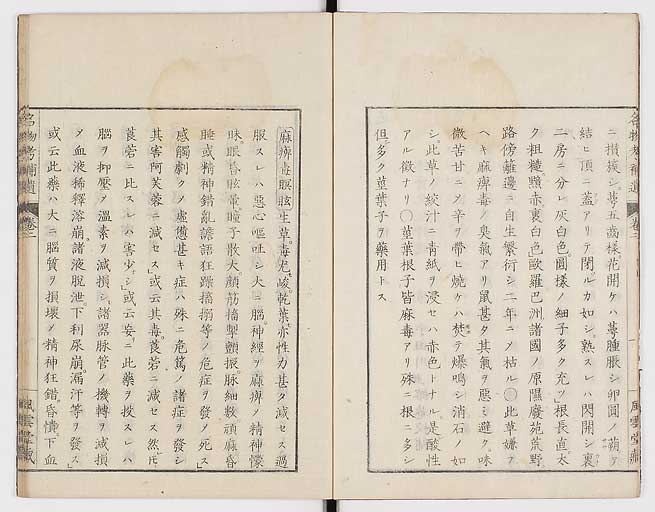 ニ攅簇シ萼五齒樣花開ケハ萼腫脹シ卵圓ノ蒴ヲ
結ヒ頂ニ蓋アリテ閉ルカ如シ熟スレハ閃開シ裏
二房ニ分レ灰白色圓樣ノ細子多ク充ツ」根長直太
ク粗糙黯赤裏白色」歐羅巴洲諸國ノ原隰廢苑荒野
路傍籬邊ニ自生繁衍シ二年ニノ枯ル〇此草嫌フ
ヘキ麻痺毒ノ臭氣アリ鼠甚タ其氣ヲ惡ミ避ク味
微苦甘ニノ辛ヲ帶ヒ燒ケハ焚テ爆鳴シ消石ノ如
シ此草ノ絞汁ニ靑紙ヲ浸セハ赤色トナル是酸性
アル徵ナリ〇莖葉根子皆麻毒アリ殊ニ根ニ多シ
但多ク莖葉子ヲ藥用トス
麻痺毒瞑眩生草毒尤峻乾葉亦性力甚タ減セス過
服スレハ惡心嘔吐シ大ニ腦神經ヲ麻痺ノ精神懞
昧昏眩暈瞳子散大顏筋搐掣顫振脉細數頑麻昏
睡或精神錯亂譫語狂躁搐搦等ノ危症ヲ發ノ死シ
感觸劇クノ虛憊甚キ症ハ殊ニ危篤ノ諸症ヲ發シ
其害阿芙蓉ニ減セス」或云其毒莨菪ニ減セス然𪜈
莨菪ニ比スレハ害少シ」或云妄ニ此藥ヲ投スレハ
腦ヲ抑壓ノ溫素ヲ減損シ諸器脉管ノ機轉ヲ減損
ノ血液稀釋溶崩諸液脫泄下利尿崩漏汗等ヲ發ス」
或云此藥ハ大ニ腦質ヲ損壞ノ精神狂錯昏憒下血
名物考補遺
卷三
風雲堂藏